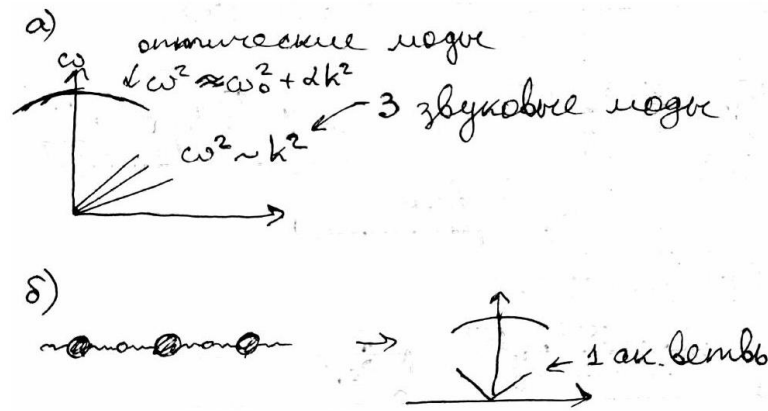 а)
оптические моды
ω
ω² ≈ ω₀² + αk²
3 звуковые моды
ω² ~ k²
б)
1 ак. ветвь